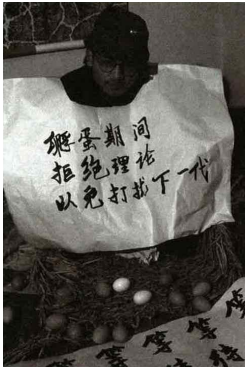 孵蛋期间
拒绝理论
以免打扰下一代
等 等 等 等
待 待